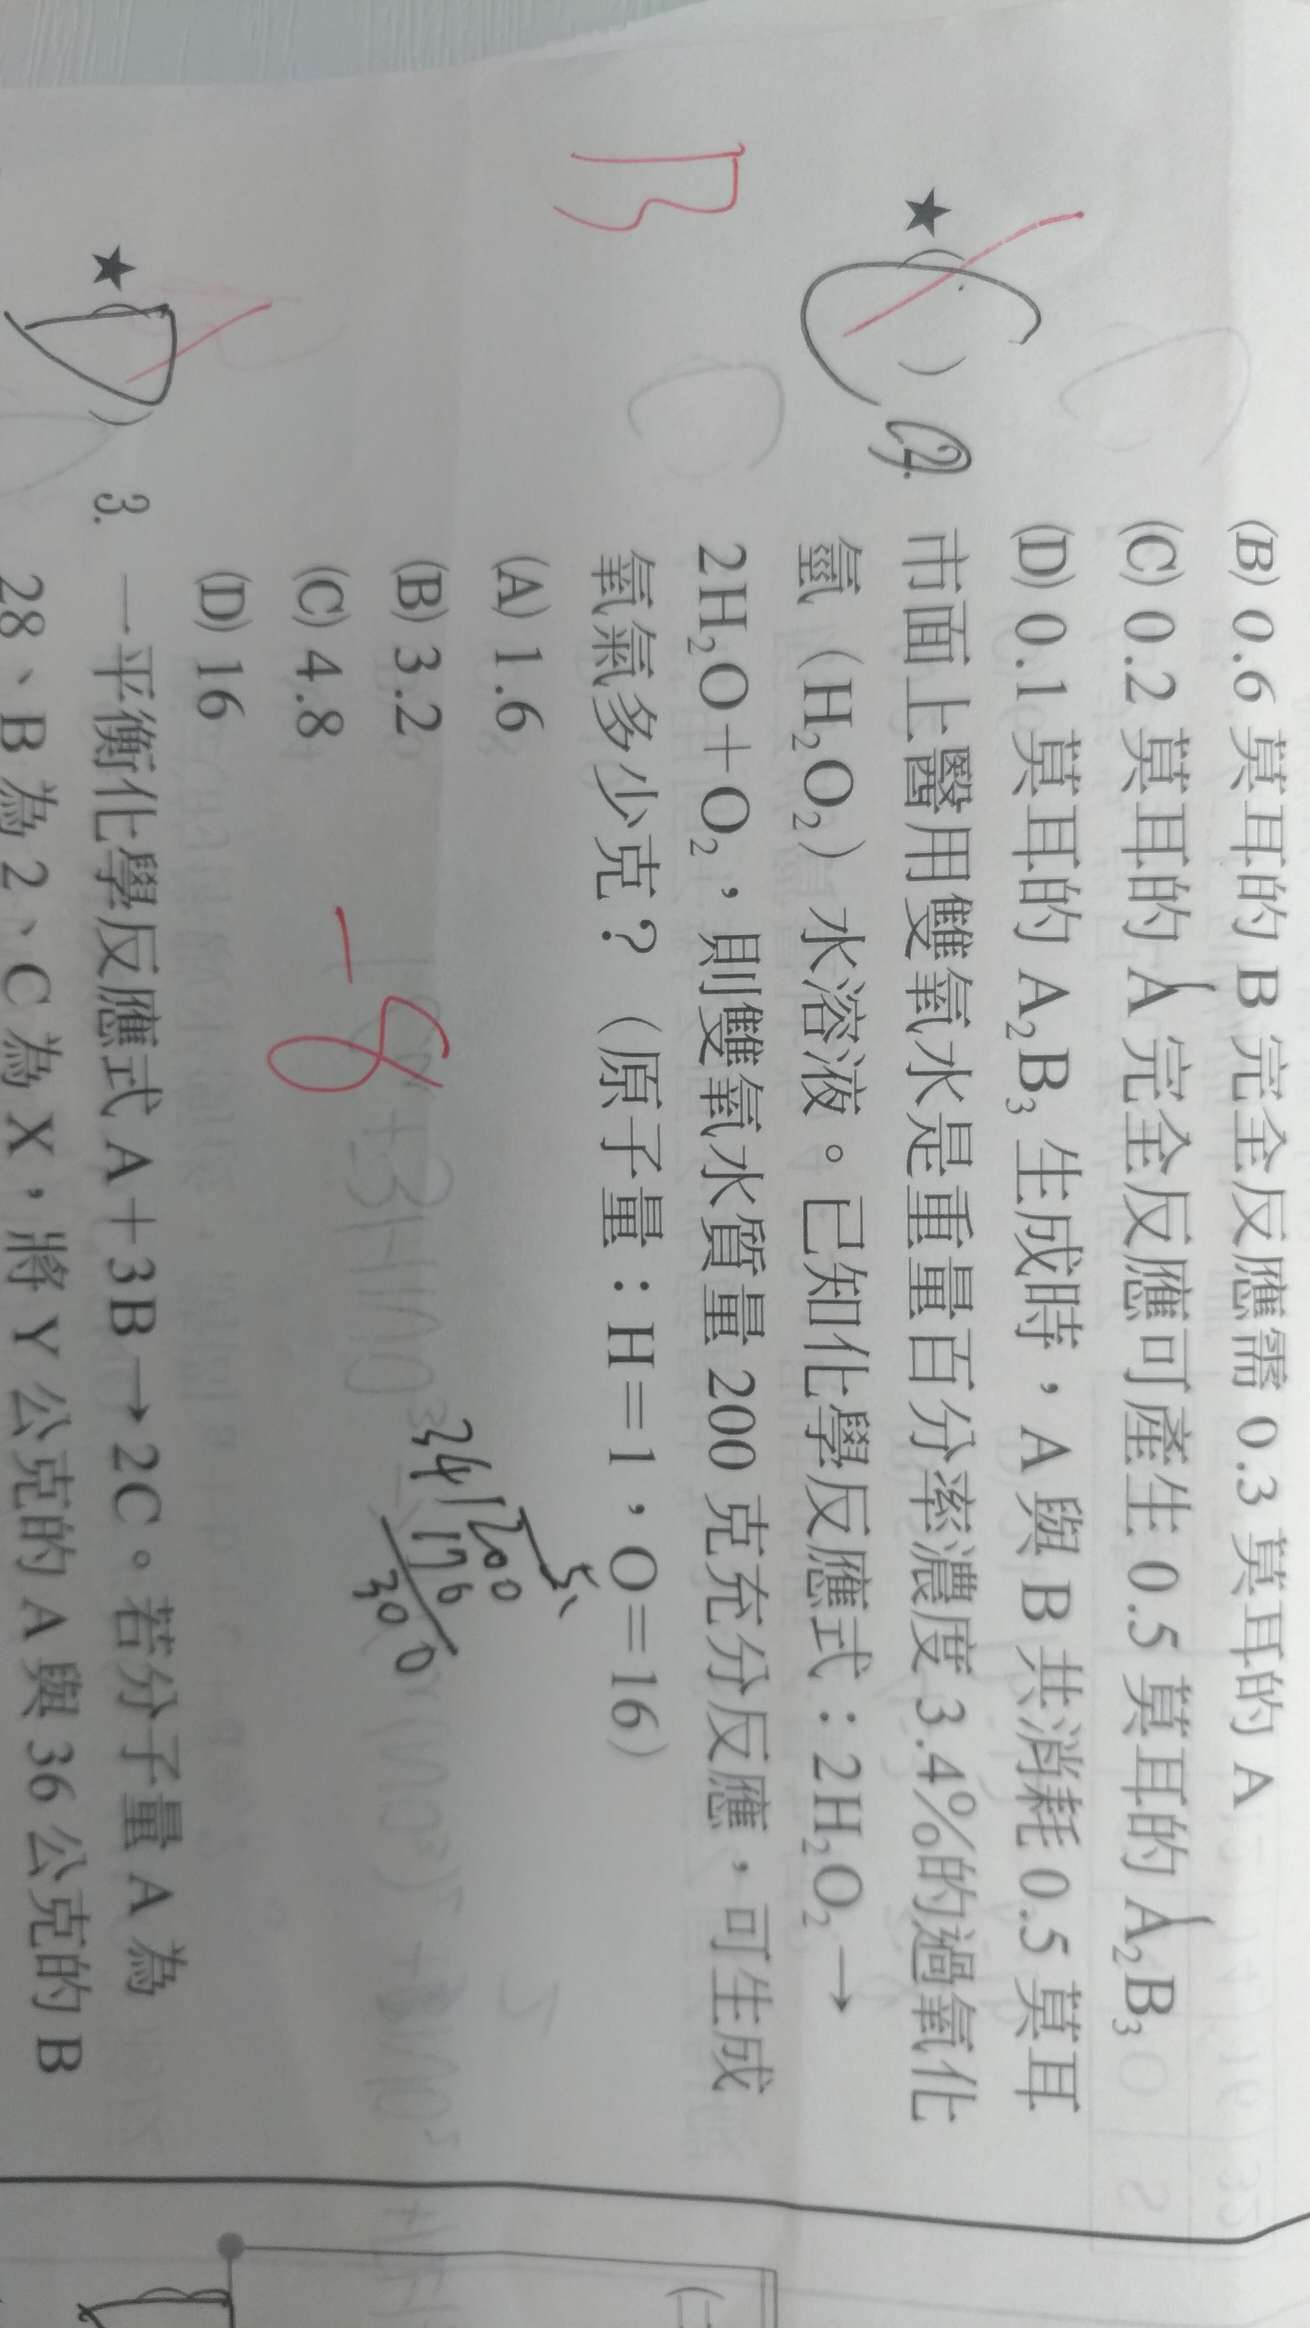 (B) 0.6 莫耳的 B 完全反應需 0.3 莫耳的 A
(C) 0.2 莫耳的 A 完全反應可產生 0.5 莫耳的 A₂B₃
(D) 0.1 莫耳的 A₂B₃ 生成時，A 與 B 共消耗 0.5 莫耳
★(C) 2. 市面上醫用雙氧水是重量百分率濃度 3.4%的過氧化
氫（H₂O₂）水溶液。已知化學反應式：2H₂O₂→
2H₂O＋O₂，則雙氧水質量 200 克充分反應，可生成
氧氣多少克？（原子量：H＝1，O＝16）
B
(A) 1.6
(B) 3.2
(C) 4.8
(D) 16
-8
5
34 200
170
300
★(D) 3. 一平衡化學反應式 A＋3B→2C。若分子量 A 為
28、B 為 2、C 為 X，將 Y 公克的 A 與 36 公克的 B